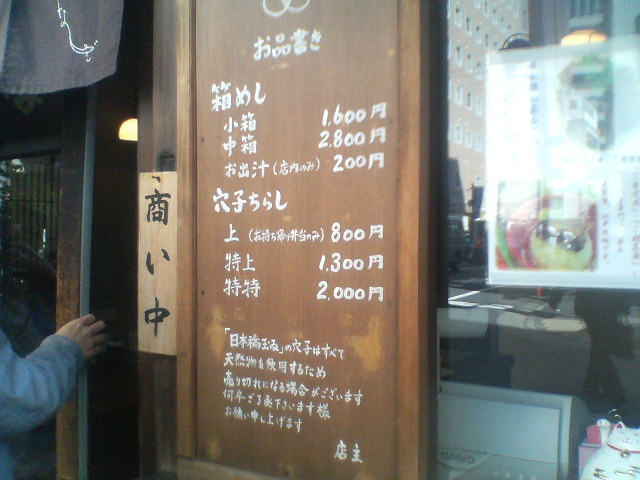 お品書き
箱めし
小箱 1.600円
中箱 2.800円
お出汁(店内のみ) 200円
穴子ちらし
上(お持ち帰り弁当のみ) 800円
特上 1.300円
特特 2.000円
「日本橋玉ゐ」の穴子はすべて
天然物を使用するため
売り切れになる場合がございます
何卒ご了承下さいます様
お願い申し上げます
店主
商い中
CASIO